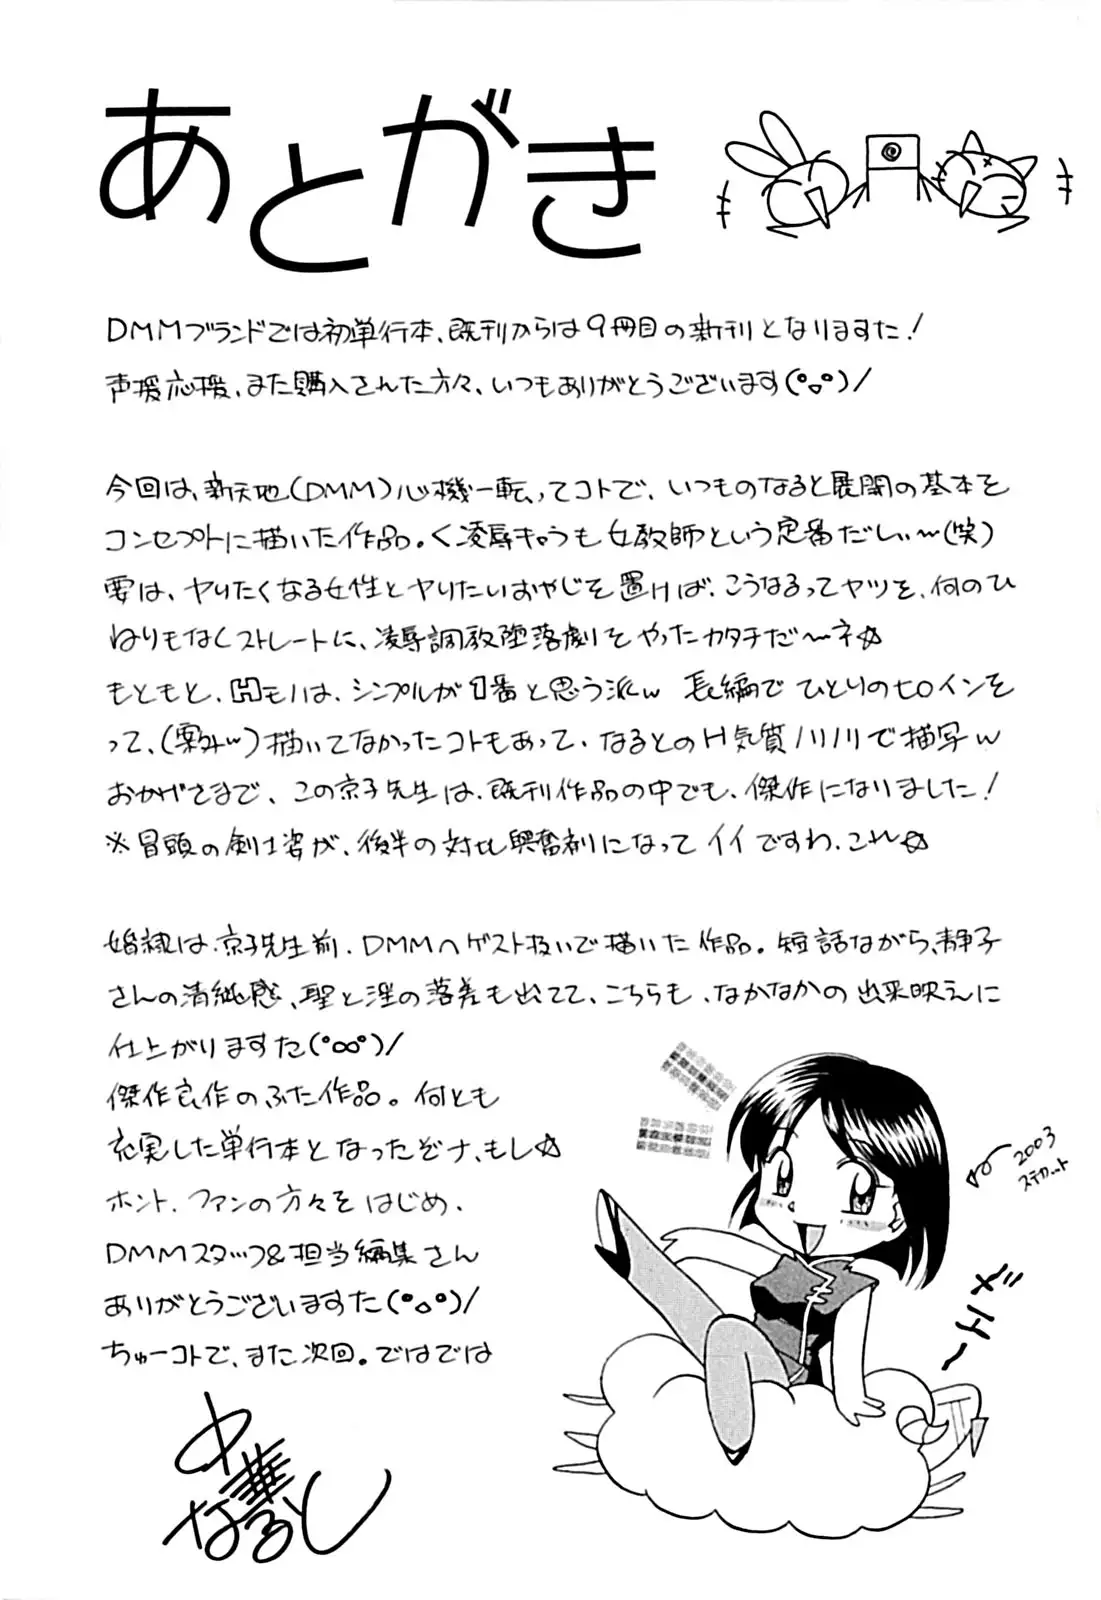 あとがき
DMMブランドでは初単行本、既刊からは9冊目の新刊となりますた!
声援応援、また購入された方々、いつもありがとうございます(°◇°)/
今回は、新天地(DMM)心機一転ってコトで、いつものなると展開の基本を
コンセプトに描いた作品。く凌辱キャラも女教師という定番だしぃ〜(笑)
要は、ヤりたくなる女性とヤりたいおやじを置けば、こうなるってヤツを、何のひ
ねりもなくストレートに、凌辱調教堕落劇をやったカタチだ〜ネ☆
もともと、Hモノは、シンプルが1番と思う派w 長編でひとりのヒロインを
って、(案外〜)描いてなかったコトもあって、なるとのH気質ノリノリで描写w
おかげさまで、この京子先生は、既刊作品の中でも、傑作になりました!
※冒頭の剣士姿が、後半の対比興奮剤になってイイですわ、これ☆
婚隷は、京子先生前、DMMへゲスト扱いで描いた作品。短話ながら、静子
さんの清純感、聖と淫の落差も出てて、こちらも、なかなかの出来映えに
仕上がりますた(°∞°)/
傑作良作のふた作品。何とも
充実した単行本となったぞナ、もし☆
ホント、ファンの方々をはじめ、
DMMスタッフ&担当編集さん
ありがとうございますた(°◇°)/
ちゅーコトで、また次回。ではでは
中華なると
2003
ステカット
メ"エ〜